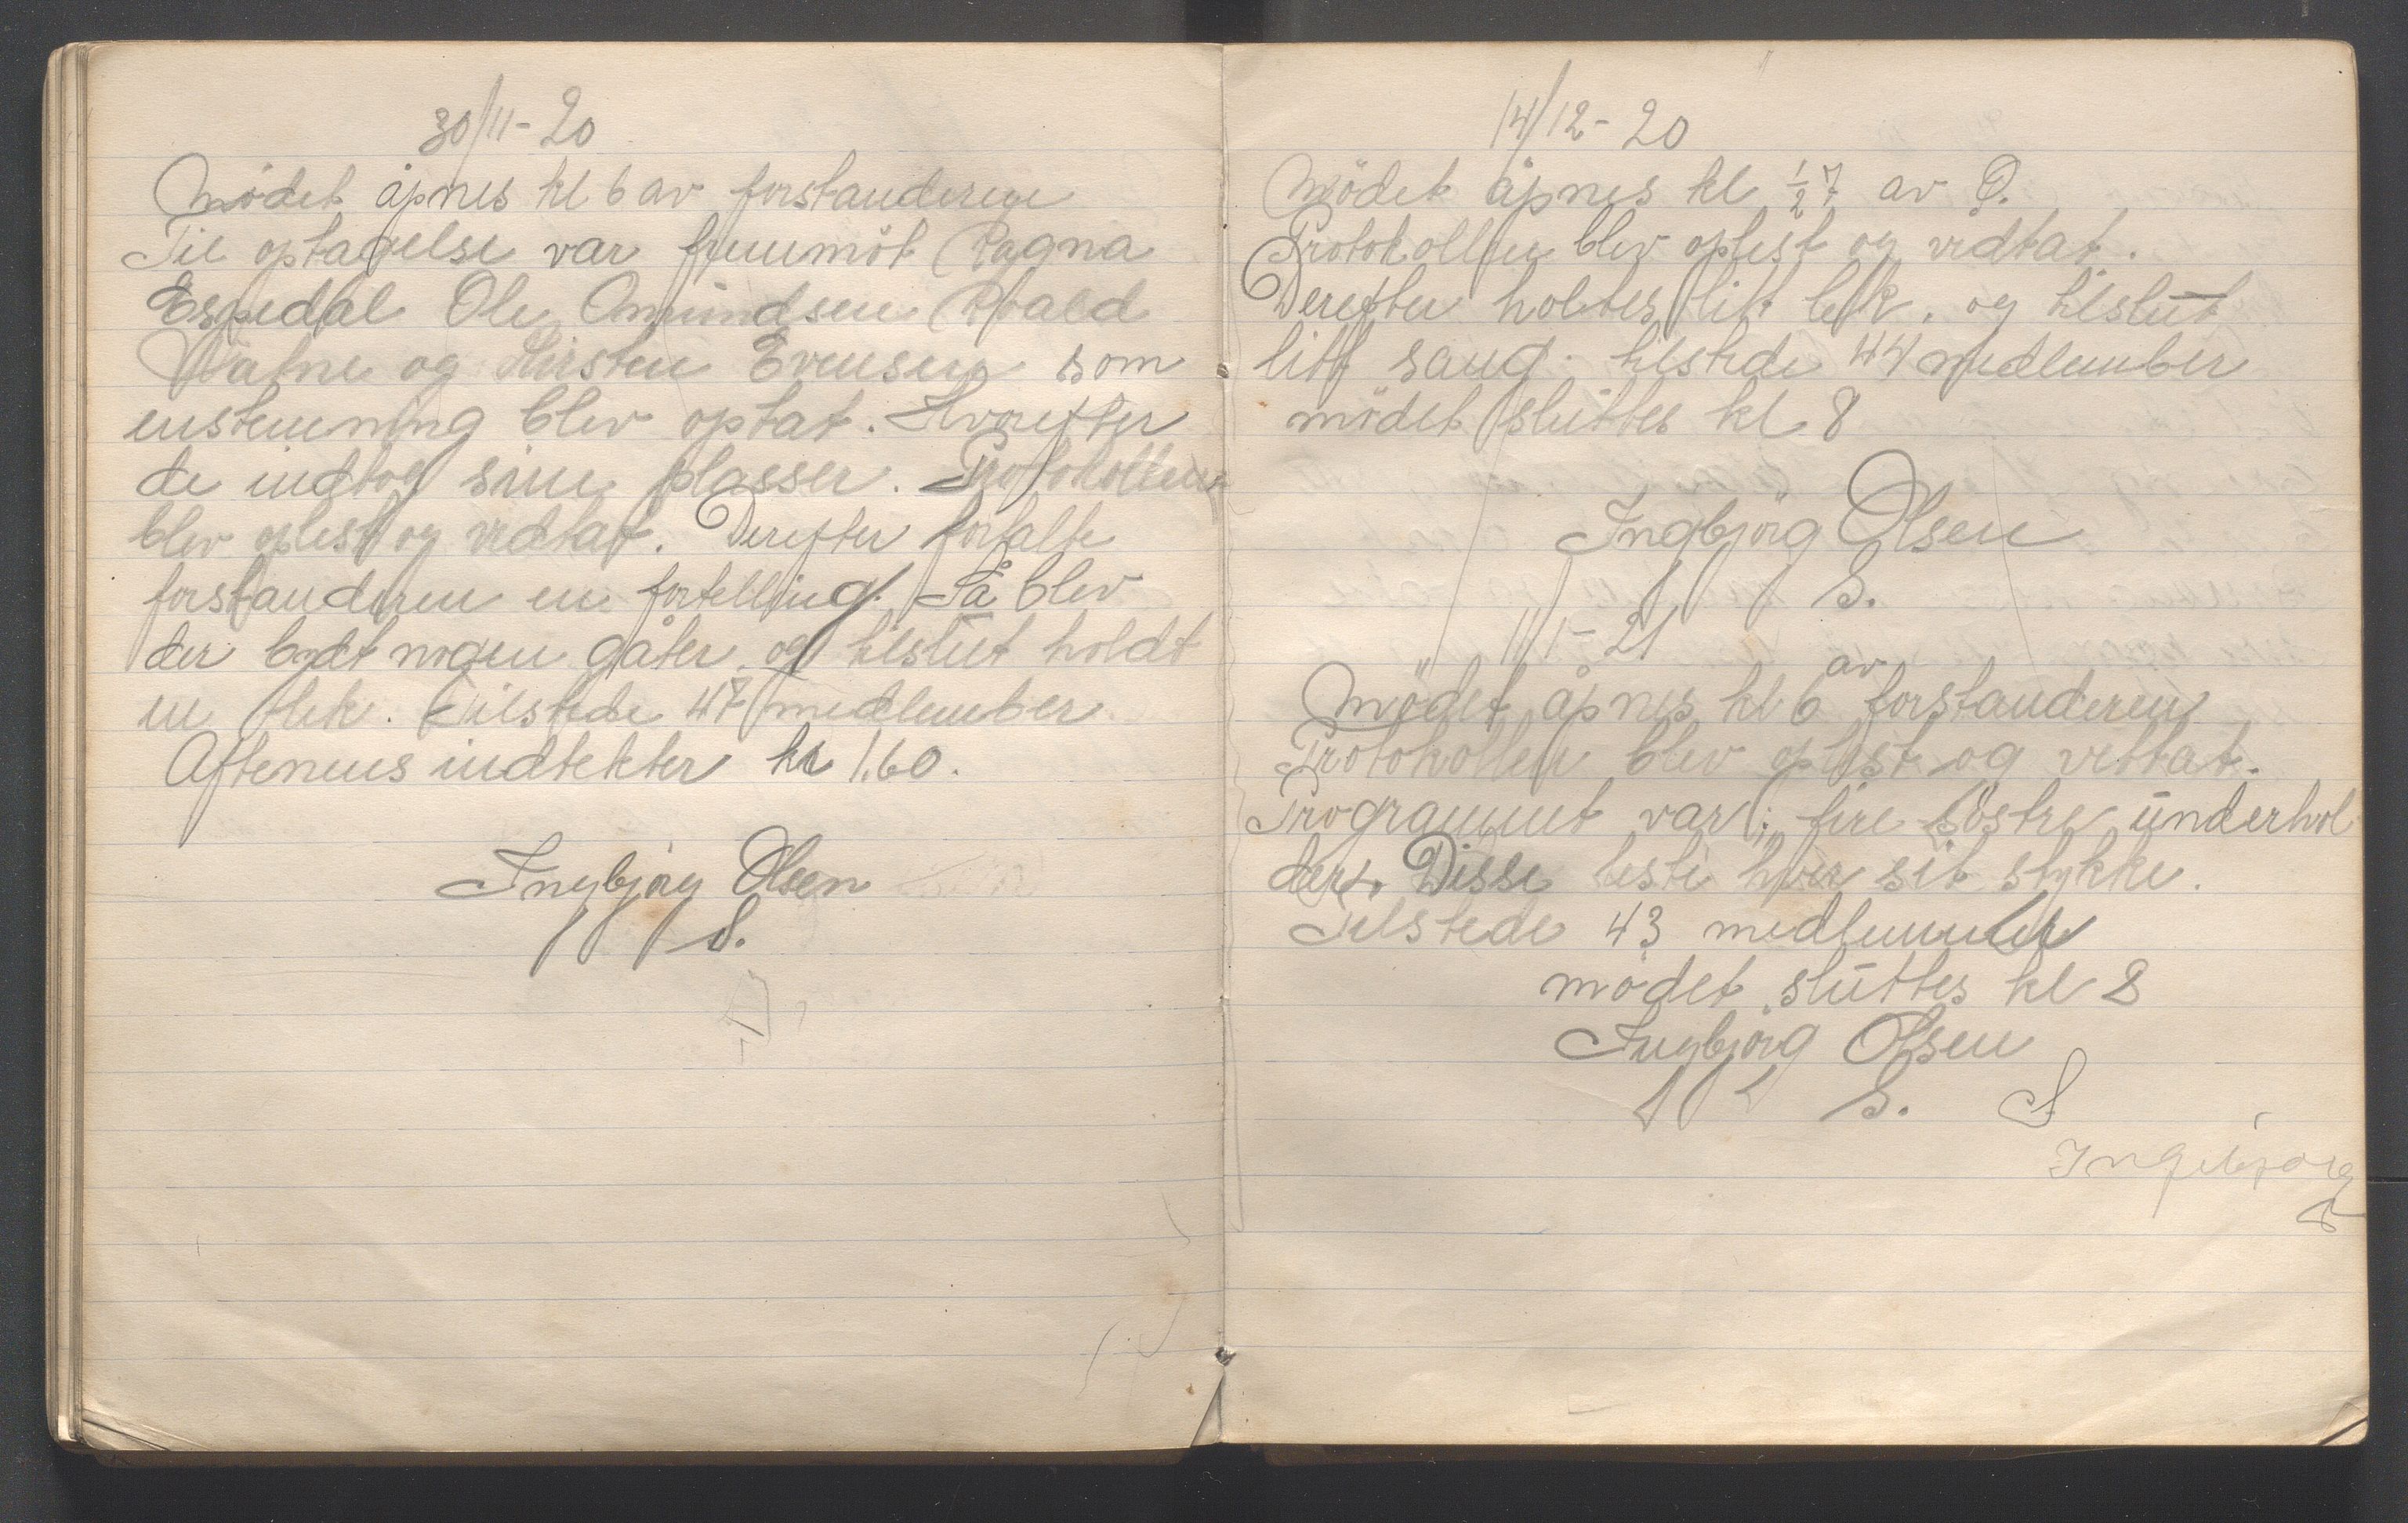 30/11-20
Mödet åpnes kl 6 av forstanderen
Til optagelse var fremmöt Ragna
Espedal Ole Omundsen Roald
Watne og Kirsten Evensen som
enstemning blev optat. Hvorefter
de indtog sine plasser. Protokollen
blev oplest og vedtat. Derefter fortalte
forstanderen en fortelling. Så blev
der bydt nogen gåter og tilslut holdt
en lek. Tilstede 47 medlember
Aftenens indtekter kr 1.60.
Ingbjörg Olsen
S.
14/12-20
Mödet åpnes kl ½7 av O.
Protokollen blev oplest og vedtat.
Derefter holdtes litt lek. og tilslut
litt sang. tilstede 44 medlember
mödet sluttes kl 8
Ingbjörg Olsen
S.
11/1-21
Mödet åpnes kl 6 av forstanderen
Protokollen blev oplest og vettat.
Programmet var: fire söstre underhol
dert. Disse leste hver sit stykke.
Tilstede 43 medlemmer
mödet sluttes kl 8
Ingbjörg Olsen
S. S
Ingebjorg